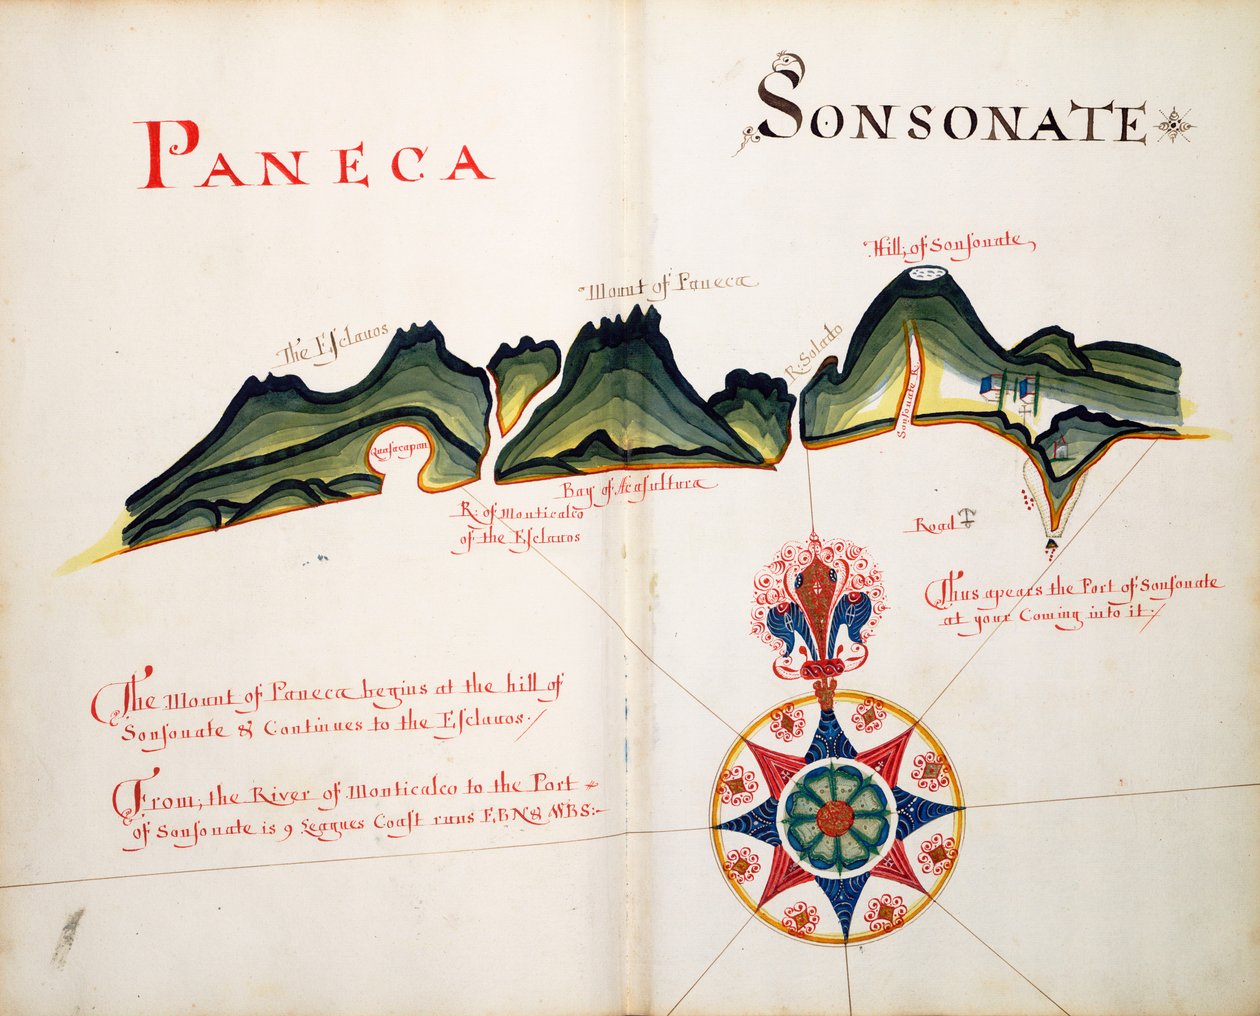 PANECA
SONSONATE
Hill, of Sonſonate
Mount of Paneca
The Eſclauos
R: Solado
Sonſonate R.
Quaſacapan
Bay of Acaſultura
R: of Monticalco
of the Eſclauos
Road
Thus apears the Port of Sonſonate
at your Coming into it./
The Mount of Paneca begins at the hill of
Sonſonate & Continues to the Eſclauos./
From, the River of Monticalco to the Port
of Sonſonate is 9 Leagues Coaſt runs EBN & WBS:-